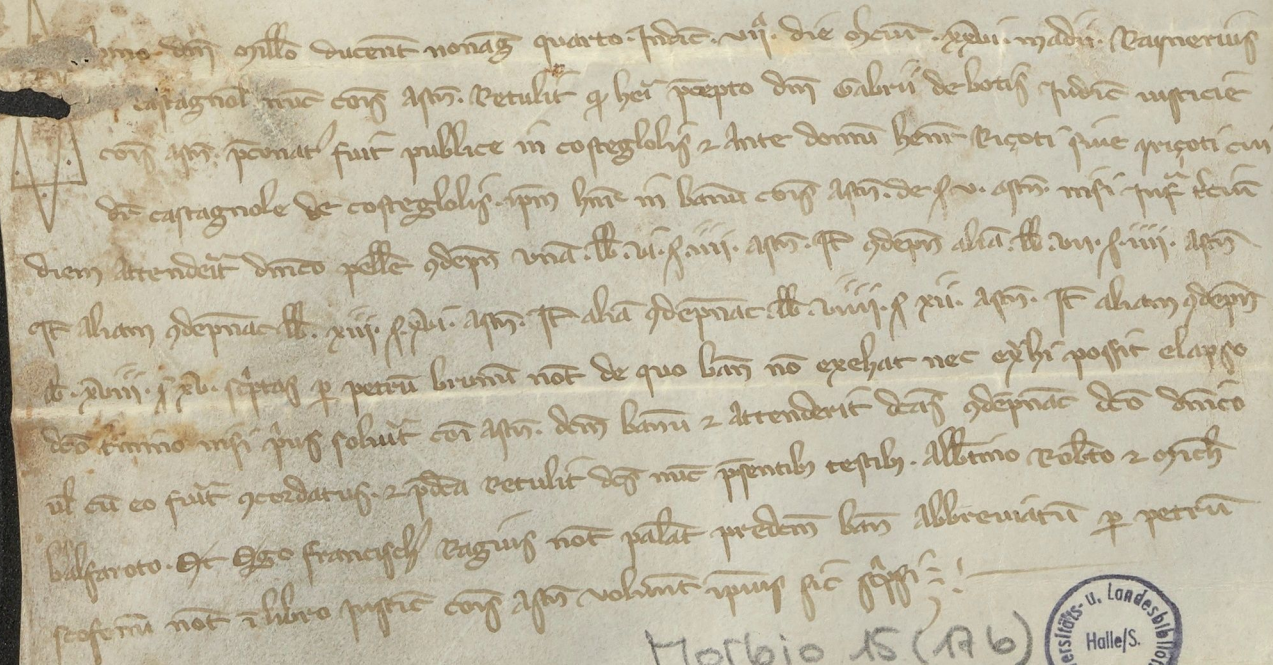 Anno dñi Millo ducent nonag quarto Indic. vij. die Mcuri. xxvi. madii. Raynerius
castagnol nunc cois Astn. Retulit q heri pcepto dni Gabrii de botis Iudic iusticie
cois Astn. pconat fuit publice in costeglolis & Ante domu henr Riçoti siue priçoti cui
dr castagnole de costeglolis. ipm hnr in banu cois Astn. de s. v. astn. nisi infra tciu
diem Attenderit dnico pelletr 9depn vna. lb. vi. s. iiii. astn. It 9depn alia lb. vii. s. iiii. astn
It aliam 9depnac lb. xiii. s. xvi. astn. It alia 9depnac lb. viiii. s xii. astn. It aliam 9depn
lb. xviii. s xv. scptas p petru brunu not de quo ban no exehat nec exhi possit elapso
dco tmino nisi pus soluit coi Astn. dcm banu & Attenderit dcas 9depnac dco dnico
ul cu eo fuit 9cordatus. & pdca Retulit dcs nunc psentib testib. Albtino Robto & Mich
balfaroto. Et Ego francisch Ragius not palat predcm ban Abbreuiatu p petru
not i libro iustic cois Astn volunt ipius sic scpssi
Morbio 15 (17b)
Universitäts- u. Landesbibliothek
Halle/S.